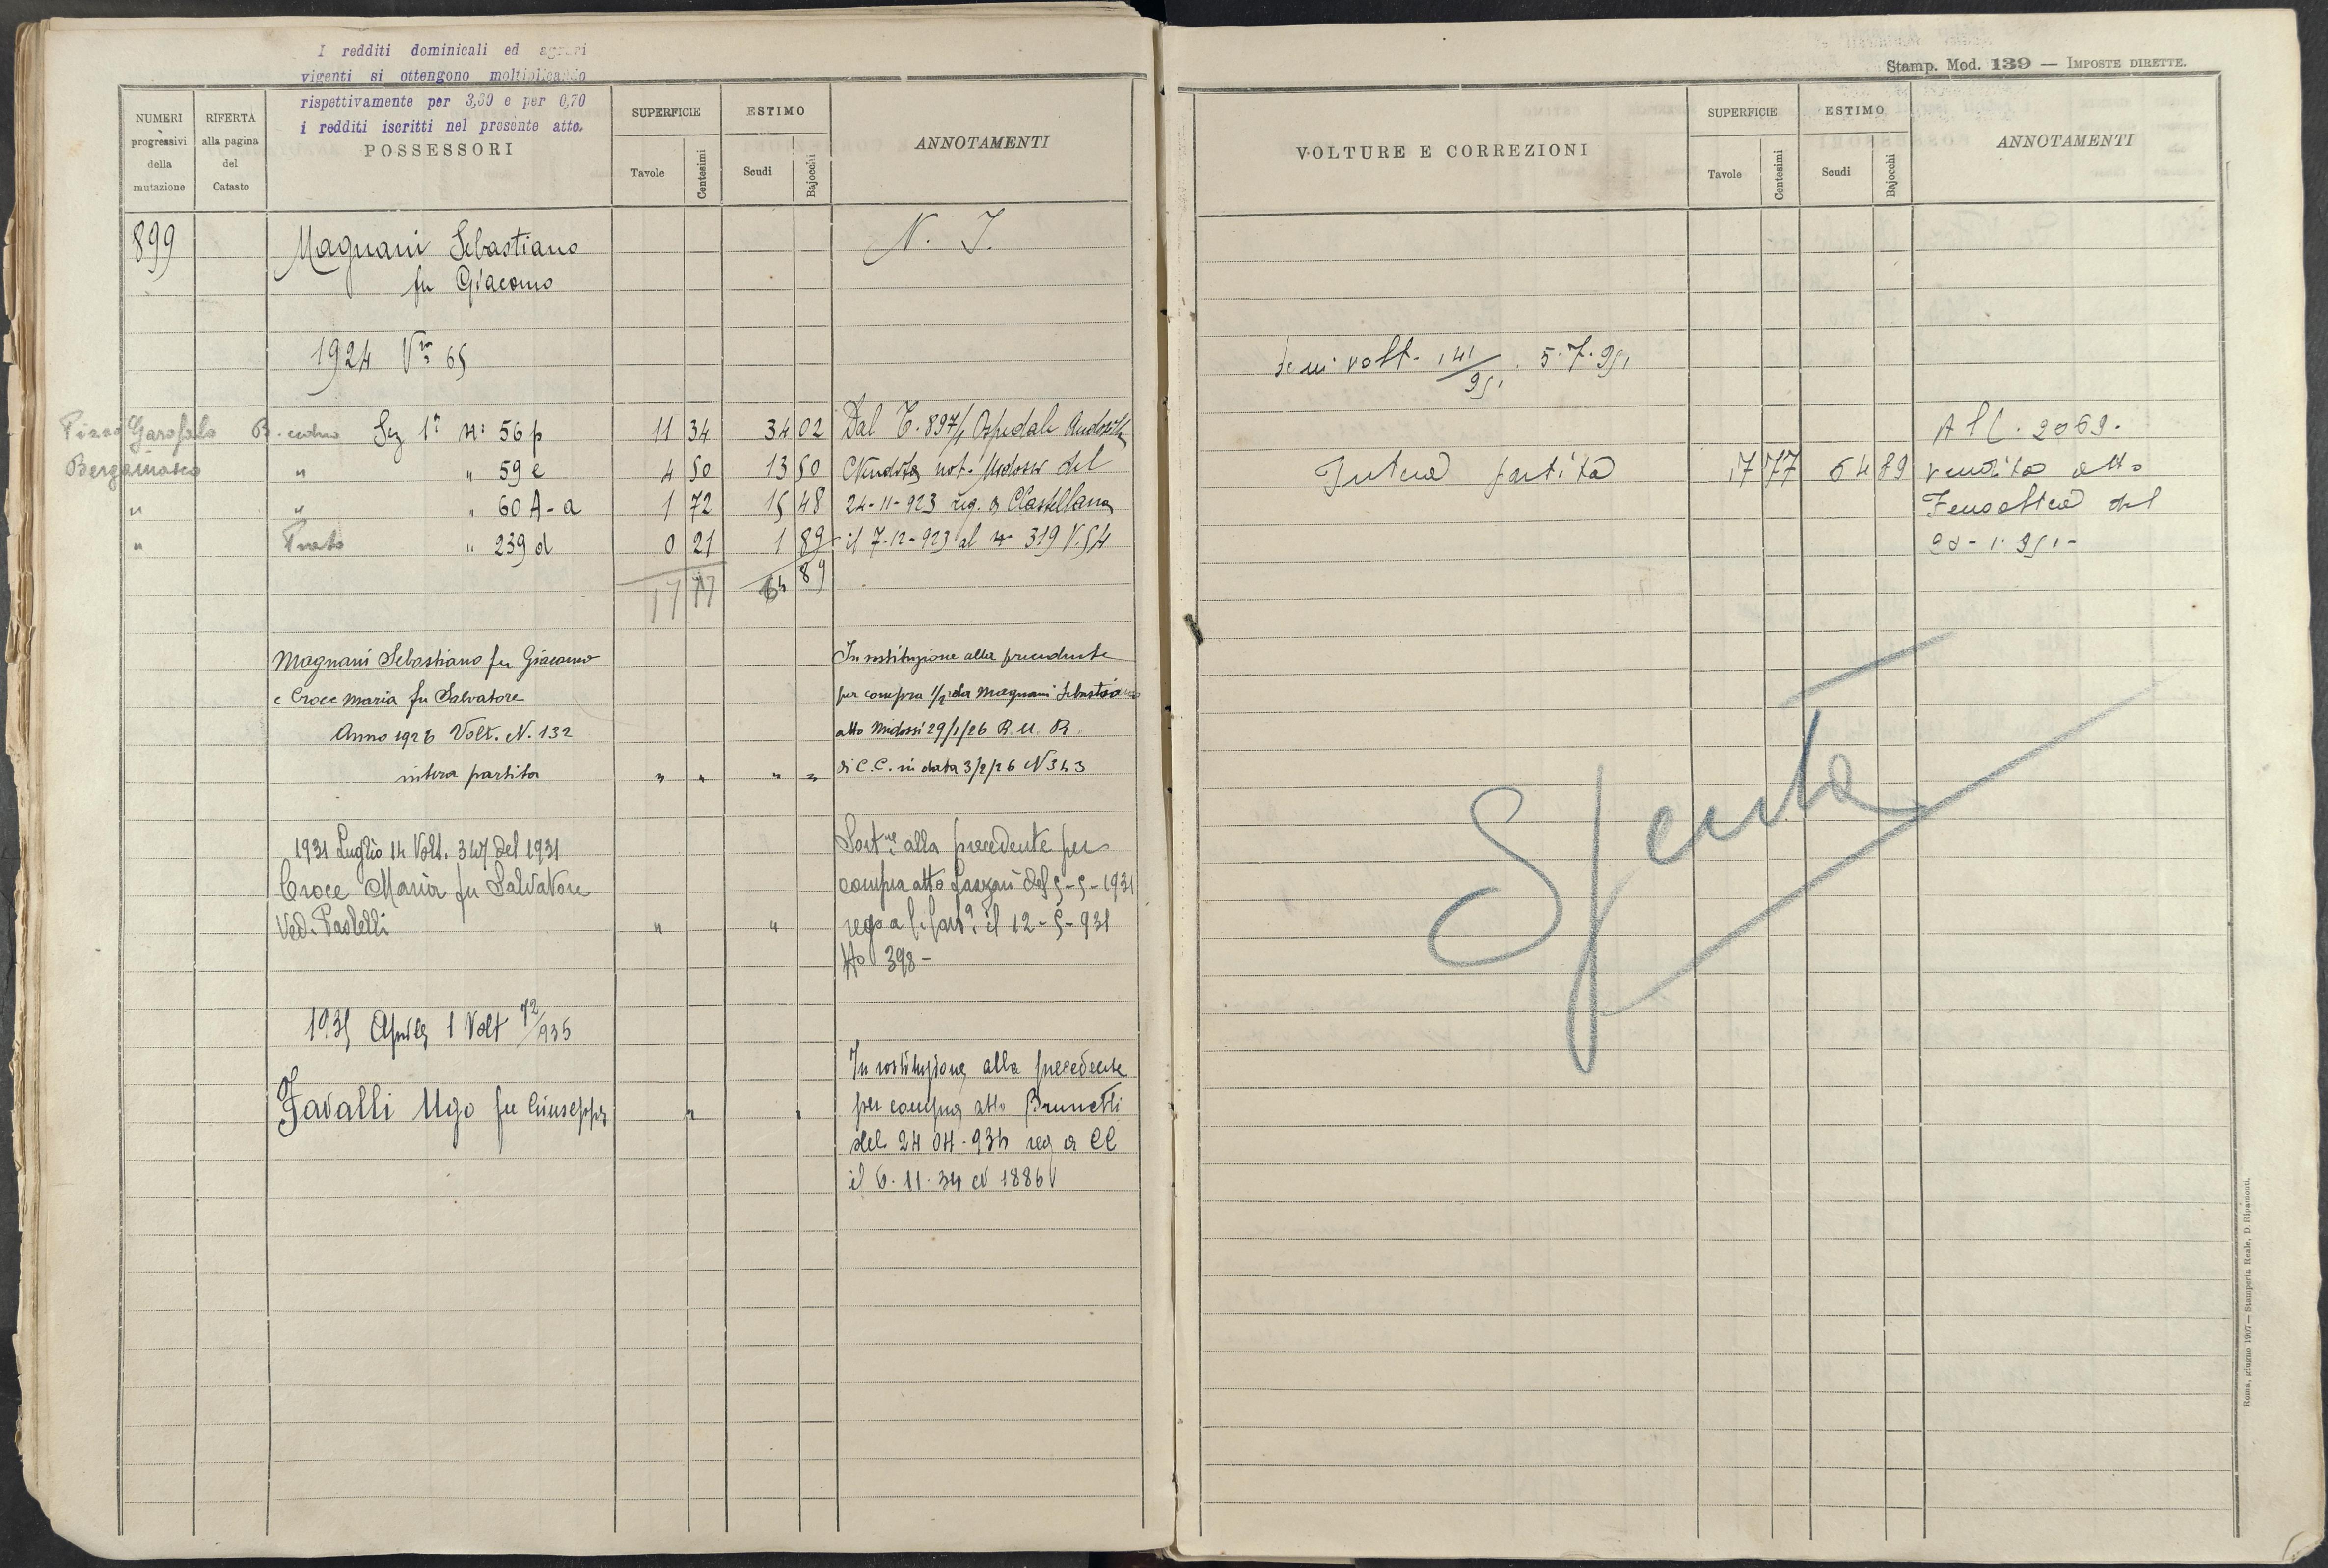 I redditi dominicali ed agrari
vigenti si ottengono moltiplicando
rispettivamente per 3,60 e per 0,70
i redditi iscritti nel presente atto.
NUMERI progressivi della mutazione
RIFERTA alla pagina del Catasto
POSSESSORI
SUPERFICIE
Tavole
Centesimi
ESTIMO
Scudi
Bajocchi
ANNOTAMENTI
899
Magnani Sebastiano
fu Giacomo
N. I.
1924 Vra 65
Pizzo Garofalo B. ceduo Sez 1a N: 56 p 11 34 34 02 Dal C. 897/1 Ospedale Andosilla
Bergamasco " " 59 e 4 50 13 50 Vendita not. Midossi del
" " " 60 A-a 1 72 15 48 24-11-923 reg. a C Castellana
" Prato " 239 d 0 21 1 89 il 7-12-923 al N 319 V. 54
17 77 64 89
Magnani Sebastiano fu Giacomo
e Croce Maria fu Salvatore
Anno 1926 Volt. N. 132
intera partita " " " "
In sostituzione alla precedente
per compra 1/2 da Magnani Sebastiano
atto Midossi 29/1/26 R. U. R.
di C. C. in data 3/2/26 N 343
1931 Luglio 14 Volt. 347 del 1931
Croce Maria fu Salvatore
Ved. Paolelli " "
Sostne alla precedente per
compra atto Lanzani del 5-5-1931
rego a C. Casta il 12-5-931
No 398 -
1935 Aprile 1 Volt 72/935
Favalli Ugo fu Giuseppe " "
In sostituzione alla precedente
per compra atto Brunetti
del 24 04-934 reg a CC
il 6.11.34 al 1886
Stamp. Mod. 139 — IMPOSTE DIRETTE.
VOLTURE E CORREZIONI
SUPERFICIE
Tavole
Centesimi
ESTIMO
Scudi
Bajocchi
ANNOTAMENTI
volt. 141/951. 5.7.951
All. 2069.
Intera partita 17 77 64 89 vendita atto
del
20-1-951-
Spenta
Roma, giugno 1907 — Stamperia Reale, D. Ripamonti.